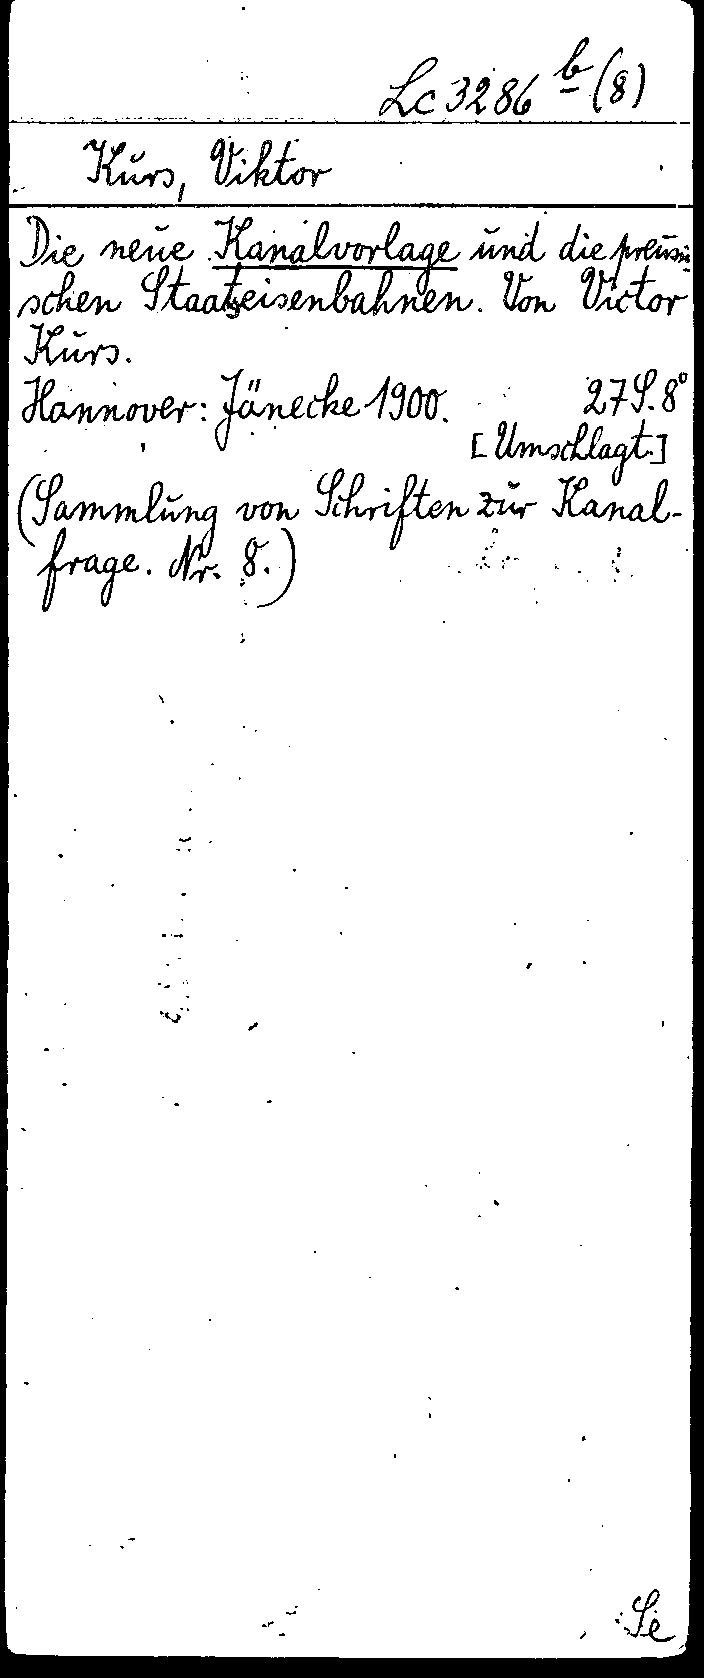 Lc 3286 b (8)
Kurs, Viktor
Die neue Kanalvorlage und die preussi-
schen Staatseisenbahnen. Von Victor
Kurs.
Hannover: Jänecke 1900. 27 S. 8°
[Umschlagt.]
(Sammlung von Schriften zur Kanal-
frage. Nr. 8.)
Se